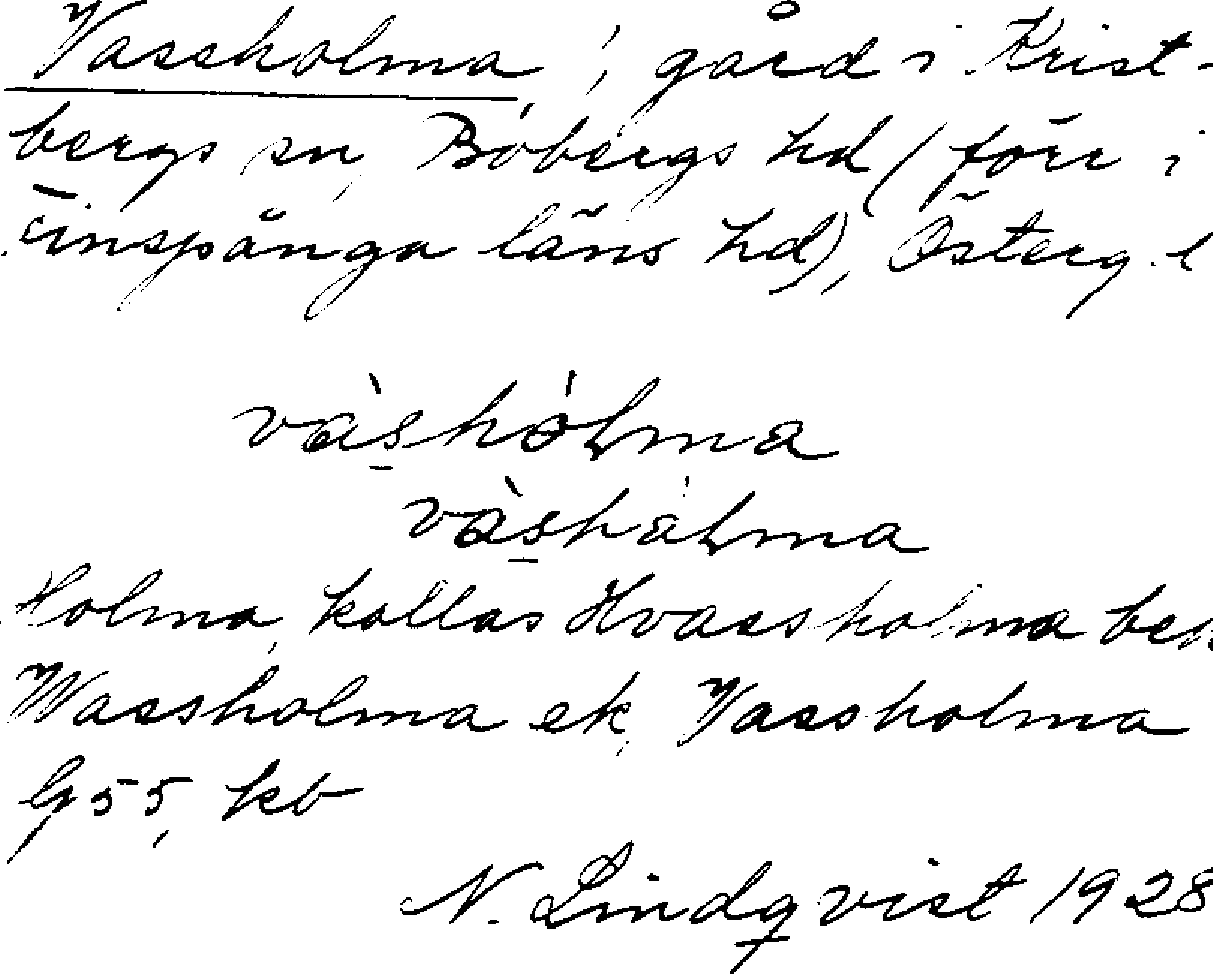 Vassholma, gård i Krist-
bergs sn, Bobergs hd (förr i
Finspånga läns hd), Österg. l
vàshólma
vàshålma
Holma, kallas Hvassholma
Wassholma ek, Vassholma
G55, kb
N. Lindqvist 1928